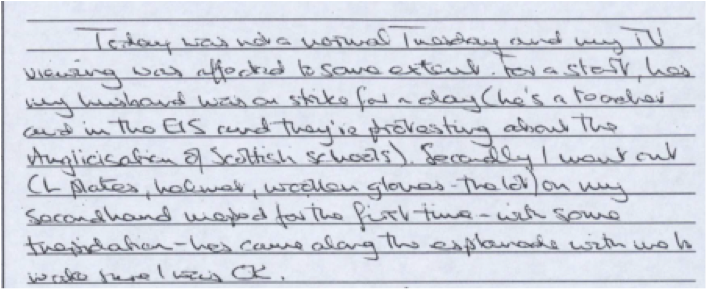 Today was not a normal Tuesday and my TV
viewing was affected to some extent. For a start,
my husband was on strike for a day (he's a teacher
and in the EIS and they're protesting about the
Anglicisation of Scottish schools). Secondly I went out
(L plates, helmet, woollen gloves - the lot) on my
secondhand moped for the first time - with some
trepidation - came along the esplanade with me to
make sure I was OK.